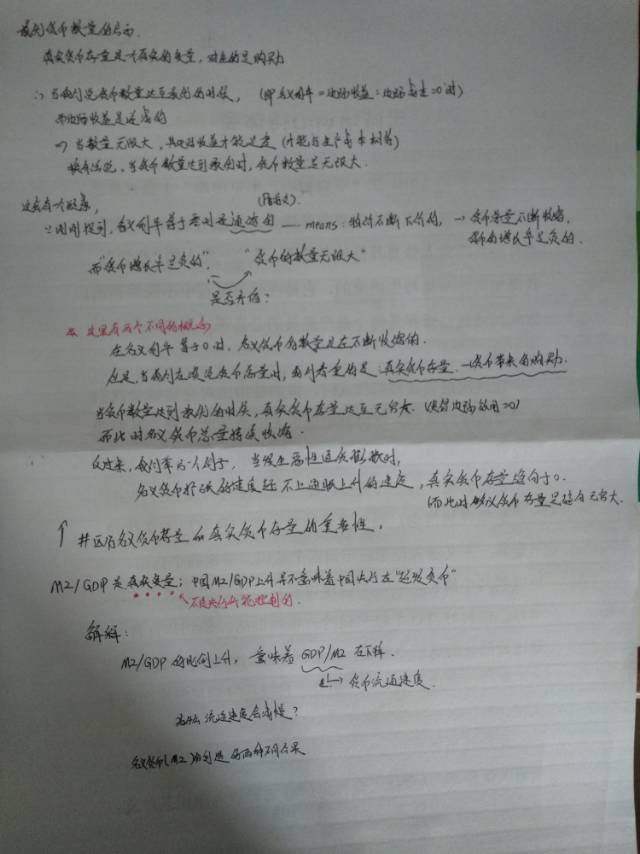 最优货币数量的层面.
真实货币存量是一个真实的变量, 对应的是购买力
∴ 当我们说货币数量达至最优的时候, (即名义利率=边际收益=边际成本=0时)
而边际收益是递减的
⇒ 当数量无限大, 其边际收益才能是零 (才能与生产成本相等)
换句话说, 当货币数量达到最优时, 货币数量是无限大.
这会有一个现象,
∵ 刚刚提到, 名义利率等于零时是通缩的 —— means: 物价不断下价的, → 货币存量不断收缩,
货币的增长率是负的.
而"货币增长率是负的", "货币的数量无限大"
是否矛盾?
这里有两个不同的概念
在名义利率等于0时, 名义货币的数量是在不断收缩的.
但是, 当我们在谈论货币存量时, 我们看重的是 真实货币存量 → 货币带来的购买力.
当货币数量达到最优的时候, 真实货币存量达至无穷大.
而此时名义货币总量持续收缩.
反过来, 我们举另一个例子, 当发生恶性通货膨胀时,
名义货币扩张的速度赶不上通胀上升的速度, 真实货币存量趋向于0.
(而此时名义货币存量是趋向无穷大.
↑ 区分名义货币存量和真实货币存量的重要性.
M2/GDP 是真实变量; 中国M2/GDP上升并不意味着中国央行在"超发货币"
不是央行所能控制的.
解释:
M2/GDP 的比例上升, 意味着 GDP/M2 在下降.
↳ 货币流通速度.
为什么流通速度会减慢?
名义货币(M2)的创造有两种不同后果